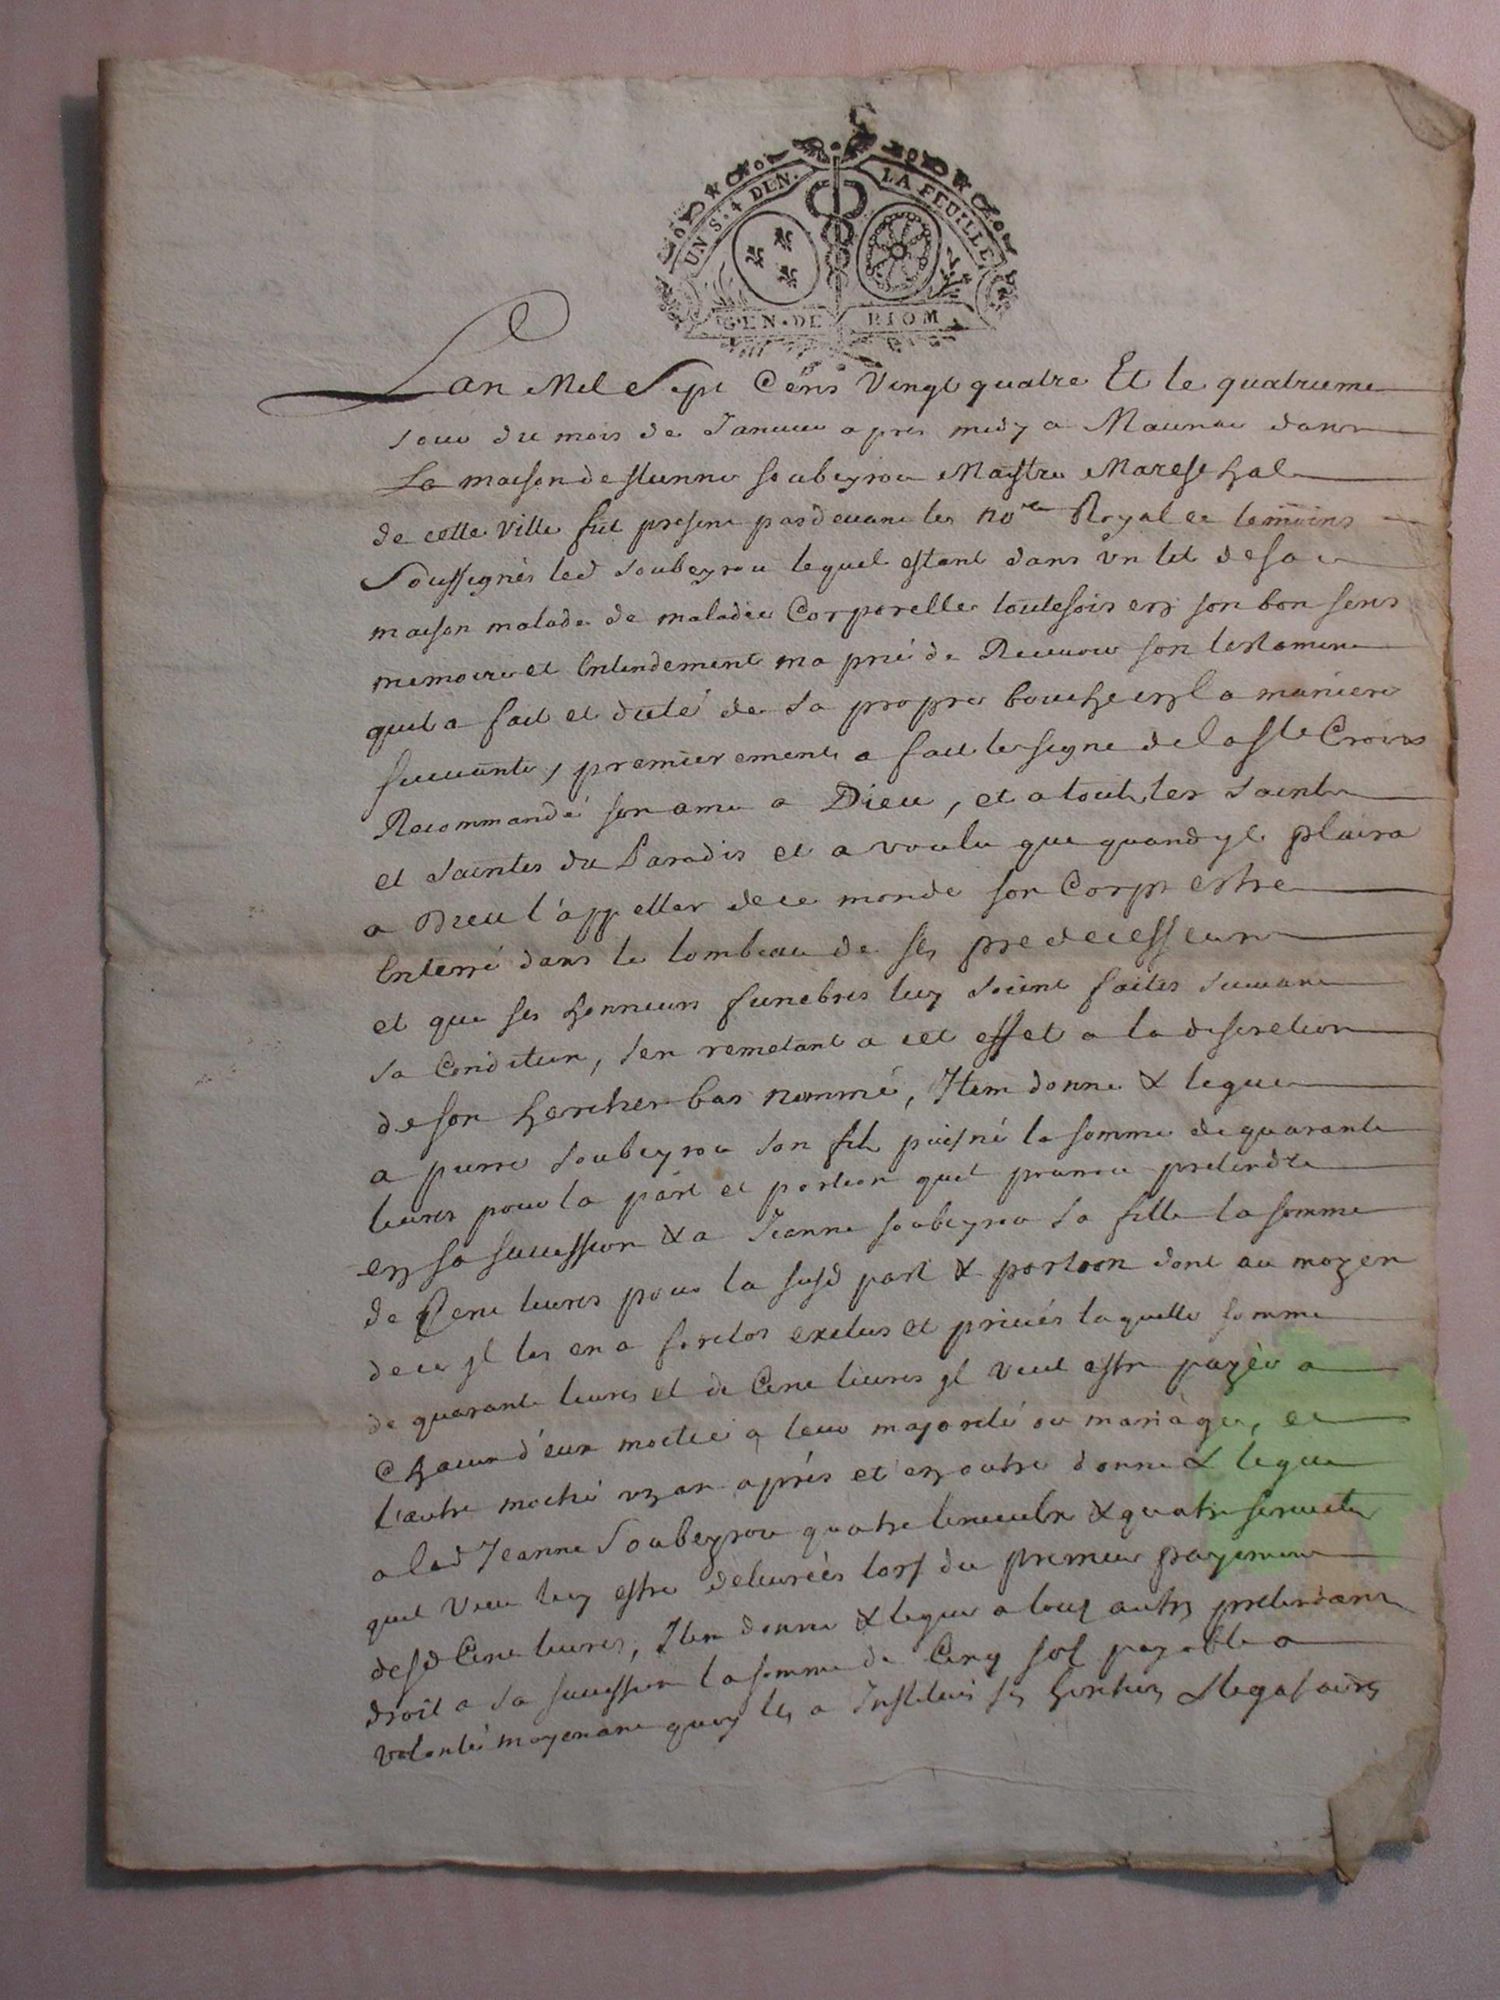 UN S. 4 DEN. LA FEUILLE
GEN. DE RIOM
Lan Mil Sept Cens Vingt quatre Et le quatrieme
Jour du mois de Januier apres midy a Mauriac dans
La maison destienne soubeyrou Maistre Mareschal
de cette Ville fut present pardeuant les nore Royal et temoins
Soussignés led soubeyrou lequel estant dans vn lit de sa
maison malade de maladie Corporelle toutefois en son bon sens
memoire et Entendement ma prié de Receuoir son testament
quil a fait et dicté de sa propre bouche en la maniere
suiuante, premierement a fait le signe de la Ste Croix
Recommandé son ame a Dieu, et a tout les saints
et saintes du Paradis et a voulu que quand yl plaira
a Dieu l'appeller de ce monde son Corps estre
Enterré dans le tombeau de ses predecesseurs
et que ses honneurs funebres luy soient faites suiuant
sa Condition, s'en remetant a cet effet a la discretion
de son heretier bas nommé, Item donne & legue
a pierre soubeyrou son fils puisné la somme de quarante
liures pour la part et portion quil pourroit pretendre
en sa succession & a Jeanne soubeyrou sa fille la somme
de Cent liures pour la susd part & portion dont au moyen
de ce yl les en a forclos exclus et priués laquelle somme
de quarante liures et de Cent liures yl veut estre payée a
Chacun d'eux moitié a leur majorité ou mariage, et
l'autre moitié vn an aprés et en outre donne & legue
a lad Jeanne Soubeyrou quatre linceuls & quatre seruietes
quil veut luy estre deliurées lors du premier payement
desd Cent liures, Item donne & legue a tous autres pretendant
droit a sa succession la somme de Cinq sols payable a
volonté moyenant quoy les a Institués ses heretiers & legataires